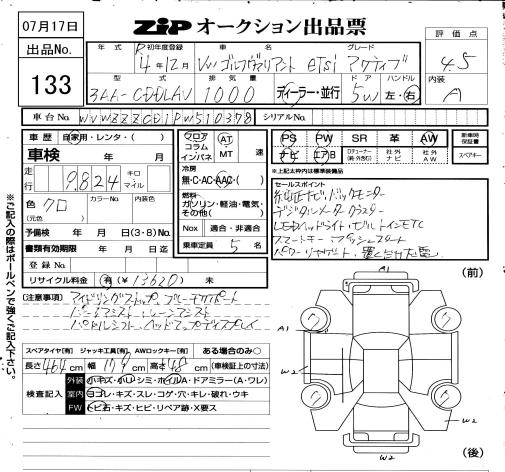 07月17日
ZIP オークション出品票
出品No.
133
年式 初年度登録 車名 グレード
R 4年12月 VW ゴルフヴァリアント eTSi アクティブ
評価点
4.5
型式 排気量 ドア ハンドル
3AA-CDDLAV 1000 ディーラー・並行 5W 左・右
内装
A
車台No. WVWZZZCD1PW510378 シリアルNo.
車歴 自家用・レンタ・( )
車検 年 月
走行 9,824 キロ マイル
色 クロ カラーNo. 内装色
(元色)
予備検 年 月 日(3・8)No.
書類有効期限 年 月 日迄
登録No.
リサイクル料金 有(¥13620)
フロア コラム インパネ
AT・MT 速
冷房
無・C・AC・AAC・( )
燃料
ガソリン・軽油・電気・その他( )
Nox 適合・非適合
乗車定員 5 名
PS PW SR 革 AW
ナビ エアB Dチューナー(純・外含む) 社外ナビ 社外AW
新車時保証書
スペアキー
※上記太枠内は標準装備品
セールスポイント
純正ナビ・バックモニター
デジタルメータークラスター
LEDヘッドライト・ビルトインETC
スマートキー・プッシュスタート
(前)
[注意事項] アイドリングストップ
レーンアシスト
パドルシフト・ヘッドアップディスプレイ
スペアタイヤ[有] ジャッキ工具[有] AWロックキー[有] ある場合のみ○
長さ 464 cm 幅 179 cm 高さ 148 cm (車検証上の寸法)
検査記入
外装 小キズ・小リ・シミ・ホイルA・ドアミラー(A・ワレ)
室内 ヨゴレ・キズ・スレ・コゲ・穴・キレ・破れ・ウキ
FW トビ石・キズ・ヒビ・リペア跡・X要ス
A1
A1
W2
W2
W2
(後)
※ご記入の際はボールペンで強くご記入下さい。